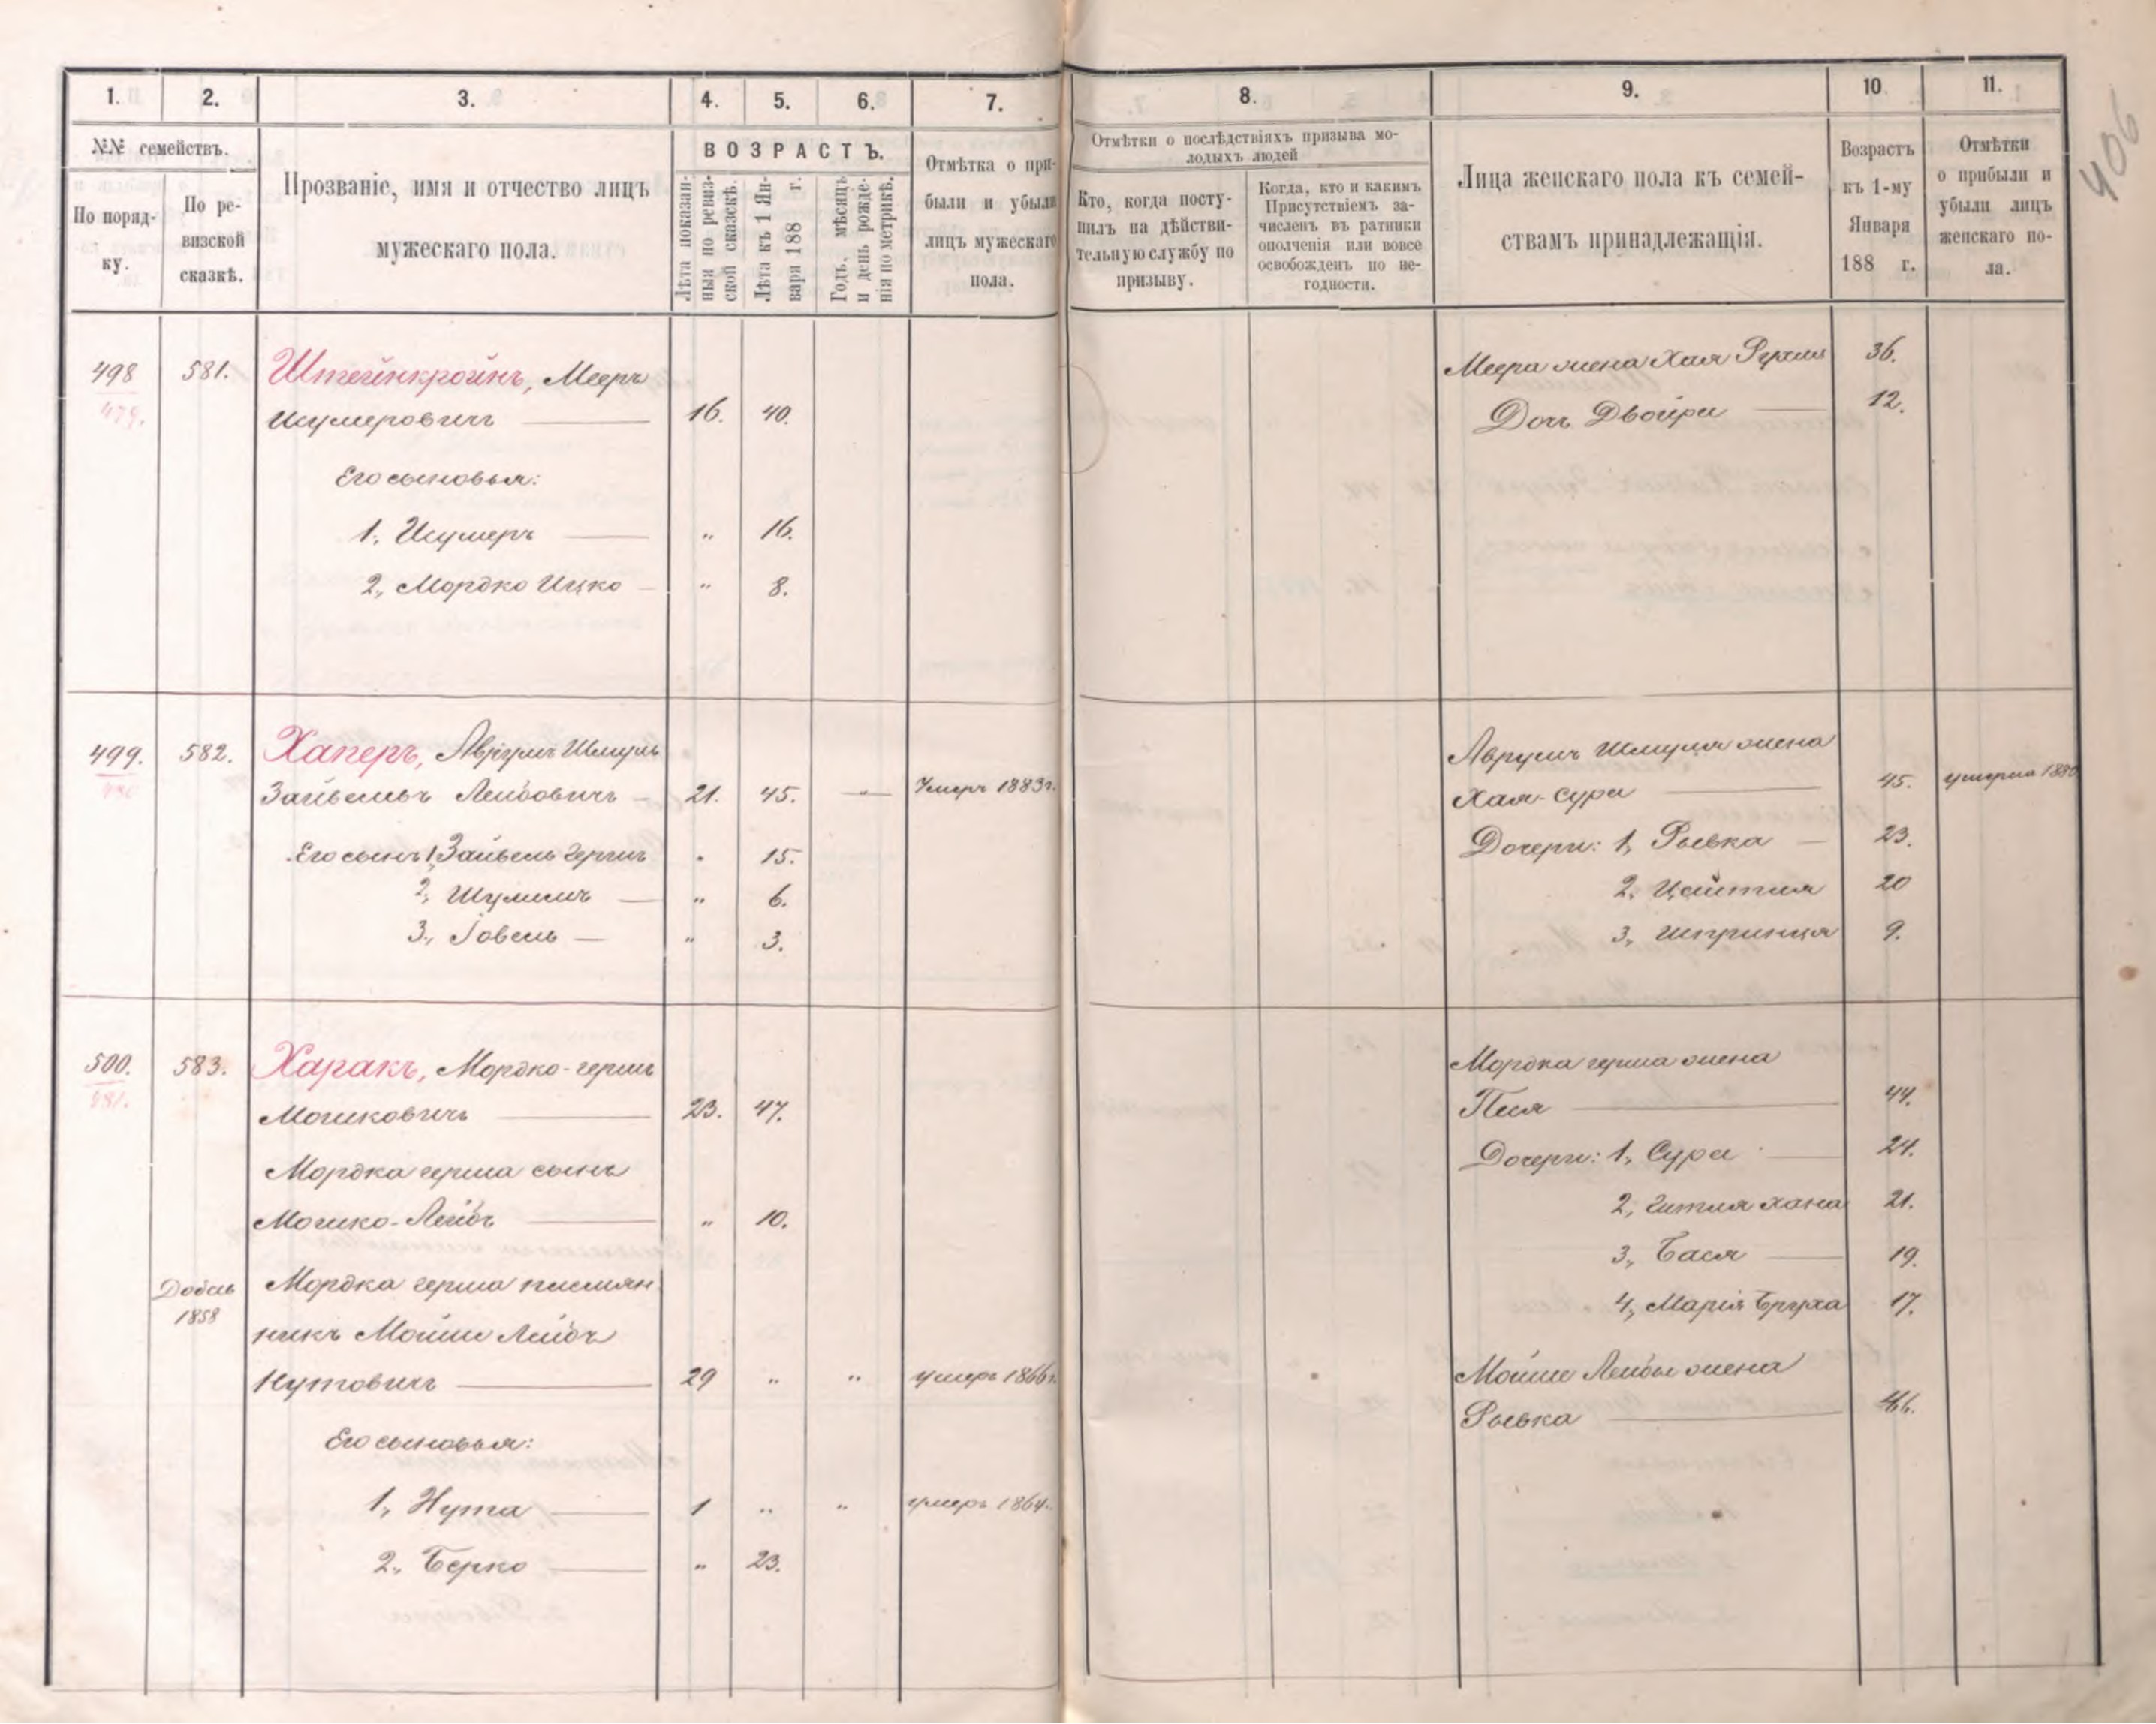 406
1. 2. 3. 4. 5. 6. 7. 8. 9. 10. 11.
№№ семействъ.
По поряд-
ку.
По ре-
визской
сказкѣ.
Прозваніе, имя и отчество лицъ
мужескаго пола.
ВОЗРАСТЪ.
Лѣта показан-
ныя по ревиз-
ской сказкѣ.
Лѣта къ 1 Ян-
варя 188 г.
Годъ, мѣсяцъ
и день рожде-
нія по метрикѣ.
Отмѣтка о при-
были и убыли
лицъ мужескаго
пола.
Отмѣтки о послѣдствіяхъ призыва мо-
лодыхъ людей
Кто, когда посту-
пилъ на дѣйстви-
тельную службу по
призыву.
Когда, кто и какимъ
Присутствіемъ за-
численъ въ ратники
ополченія или вовсе
освобожденъ по не-
годности.
Лица женскаго пола къ семей-
ствамъ принадлежащія.
Возрастъ
къ 1-му
Января
188 г.
Отмѣтки
о прибыли и
убыли лицъ
женскаго по-
ла.
498 581. Штейнкройнъ, Мееръ
479.
Шумеровичъ 16. 40.
Его сыновья:
1, Шумеръ " 16.
2, Мордко Ицко " 8.
Меера жена Хая Рухля 36.
Дочь Двойра 12.
499. 582. Хаперъ, Аврумъ Шмуль
480
Зайвель Лейбовичъ 21. 45. Умеръ 1883 г.
Его сынъ 1, Зайвель Гершъ " 15.
2, Шулимъ " 6.
3, Іовель " 3.
Аврумъ Шмуля жена
Хая-Сура 45. умерла 1880
Дочери: 1, Рывка 23.
2, Цейтля 20
3, Шпринця 9.
500. 583. Харакъ, Мордко-Гершъ
481.
Мошковичъ 23. 47.
Мордка Герша сынъ
Мошко-Лейбъ " 10.
1858 Мордка Герша племян-
никъ Мойше Лейбъ
Нутовичъ 29 " " умеръ 1866 г.
Его сыновья:
1, Нута 1 " " умеръ 1864.
2, Берко " 23.
Мордка Герша жена
44.
Дочери: 1, Сура 24.
2, Гитля Хана 21.
3, Бася 19.
4, Марія Бруха 17.
Мойше Лейбы жена
Рывка 46.